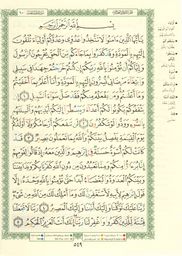 بِسْمِ اللَّهِ الرَّحْمَٰنِ الرَّحِيمِ
يَٰٓأَيُّهَا الَّذِينَ ءَامَنُوا لَا تَتَّخِذُوا عَدُوِّي وَعَدُوَّكُمْ أَوْلِيَآءَ تُلْقُونَ
إِلَيْهِم بِالْمَوَدَّةِ وَقَدْ كَفَرُوا بِمَا جَآءَكُم مِّنَ الْحَقِّ يُخْرِجُونَ الرَّسُولَ
وَإِيَّاكُمْ أَن تُؤْمِنُوا بِاللَّهِ رَبِّكُمْ إِن كُنتُمْ خَرَجْتُمْ جِهَٰدًا فِي سَبِيلِي
وَابْتِغَآءَ مَرْضَاتِي تُسِرُّونَ إِلَيْهِم بِالْمَوَدَّةِ وَأَنَا أَعْلَمُ بِمَآ أَخْفَيْتُمْ وَمَآ
أَعْلَنتُمْ وَمَن يَفْعَلْهُ مِنكُمْ فَقَدْ ضَلَّ سَوَآءَ السَّبِيلِ ١ إِن يَثْقَفُوكُمْ
يَكُونُوا لَكُمْ أَعْدَآءً وَيَبْسُطُوا إِلَيْكُمْ أَيْدِيَهُمْ وَأَلْسِنَتَهُم
بِالسُّوٓءِ وَوَدُّوا لَوْ تَكْفُرُونَ ٢ لَن تَنفَعَكُمْ أَرْحَامُكُمْ وَلَآ أَوْلَٰدُكُمْ
يَوْمَ الْقِيَٰمَةِ يَفْصِلُ بَيْنَكُمْ وَاللَّهُ بِمَا تَعْمَلُونَ بَصِيرٌ ٣ قَدْ
كَانَتْ لَكُمْ أُسْوَةٌ حَسَنَةٌ فِيٓ إِبْرَٰهِيمَ وَالَّذِينَ مَعَهُٓ إِذْ قَالُوا لِقَوْمِهِمْ
إِنَّا بُرَءَٰٓؤُا مِنكُمْ وَمِمَّا تَعْبُدُونَ مِن دُونِ اللَّهِ كَفَرْنَا بِكُمْ وَبَدَا بَيْنَنَا
وَبَيْنَكُمُ الْعَدَٰوَةُ وَالْبَغْضَآءُ أَبَدًا حَتَّىٰ تُؤْمِنُوا بِاللَّهِ وَحْدَهُٓ إِلَّا قَوْلَ
إِبْرَٰهِيمَ لِأَبِيهِ لَأَسْتَغْفِرَنَّ لَكَ وَمَآ أَمْلِكُ لَكَ مِنَ اللَّهِ مِن شَيْءٍ
رَّبَّنَا عَلَيْكَ تَوَكَّلْنَا وَإِلَيْكَ أَنَبْنَا وَإِلَيْكَ الْمَصِيرُ ٤ رَبَّنَا لَا تَجْعَلْنَا
فِتْنَةً لِّلَّذِينَ كَفَرُوا وَاغْفِرْ لَنَا رَبَّنَآ إِنَّكَ أَنتَ الْعَزِيزُ الْحَكِيمُ ٥
٥٤٩